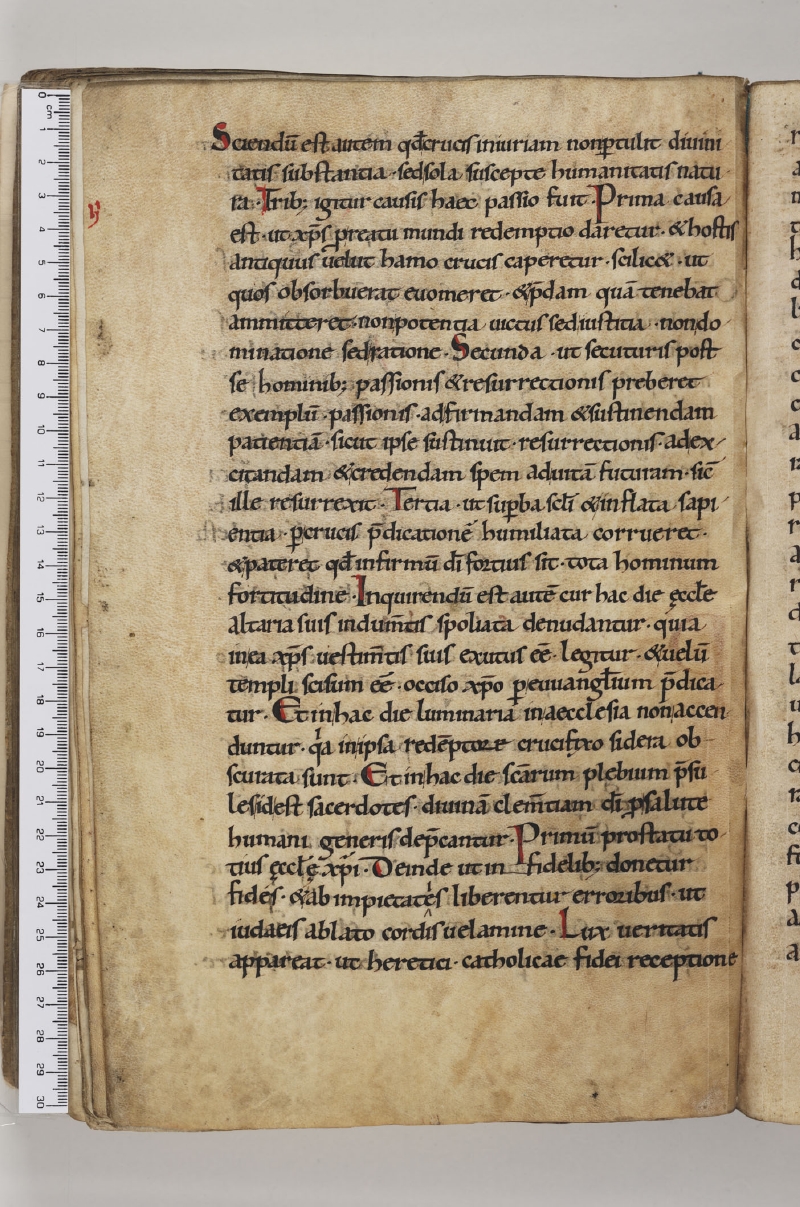 Sciendū est autem qđ crucis iniuriam non ꝑtulit diuini
tatis substantia · sed sola suscepte humanitatis natu
ra · Trib; igitur causis haec passio fuit · Prima causa
est · ut xp̄s p reatu mundi redemptio daretur · & hostis
antiquus uelut hamo crucis caperetur · scilic& · ut
quos obsorbuerat euomeret · & p̄dam quā tenebat
ammitteret · non potentia uictus sed iustitia · non do
minatione sed ratione · Secunda · ut secuturis post
se hominib; passionis & resurrectionis preberet
exemplū · passionis · ad firmandam & sustinendam
patientiā · sicut ipse sustinuit · resurrectionis · ad ex
citandam & credendam spem ad uitā futuram · sic̄
ille resurrexit · Tertia · ut suꝑba scl̄i & inflata sapi
entia · ꝑ crucis p̄dicationē humiliata corrueret ·
& pateret qđ infirmū dī fortius sit · tota hominum
fortitudine · Inquirendū est autē cur hac die ęccl̄e
altaria suis indum̄tis spoliata denudantur · quia
in ea xp̄s uestim̄tis suis exutus eē · legitur · & uelū
templi scisum eē · occiso xp̄o ꝑ euuangl̄ium p̄dica
tur · Et in hac die luminaria in aecclesia non accen
duntur · q̄a in ipsa redēptore crucifixo sidera ob
scurata sunt · Et in hac die scārum plebium p̄su
les id est sacerdotes · diuinā clem̄tiam dī p salute
humani generis dep̄cantur · Primū pro statu to
tius ęccl̄ę xp̄i · Deinde ut in fidelib; donetur
fides · & ab impietatis liberentur erroribus · ut
iudaeis ablato cordis uelamine · Lux ueritatis
appareat · ut heretici · catholicae fidei receptione
0
cm
1
2
3
4
5
6
7
8
9
10
11
12
13
14
15
16
17
18
19
20
21
22
23
24
25
26
27
28
29
30